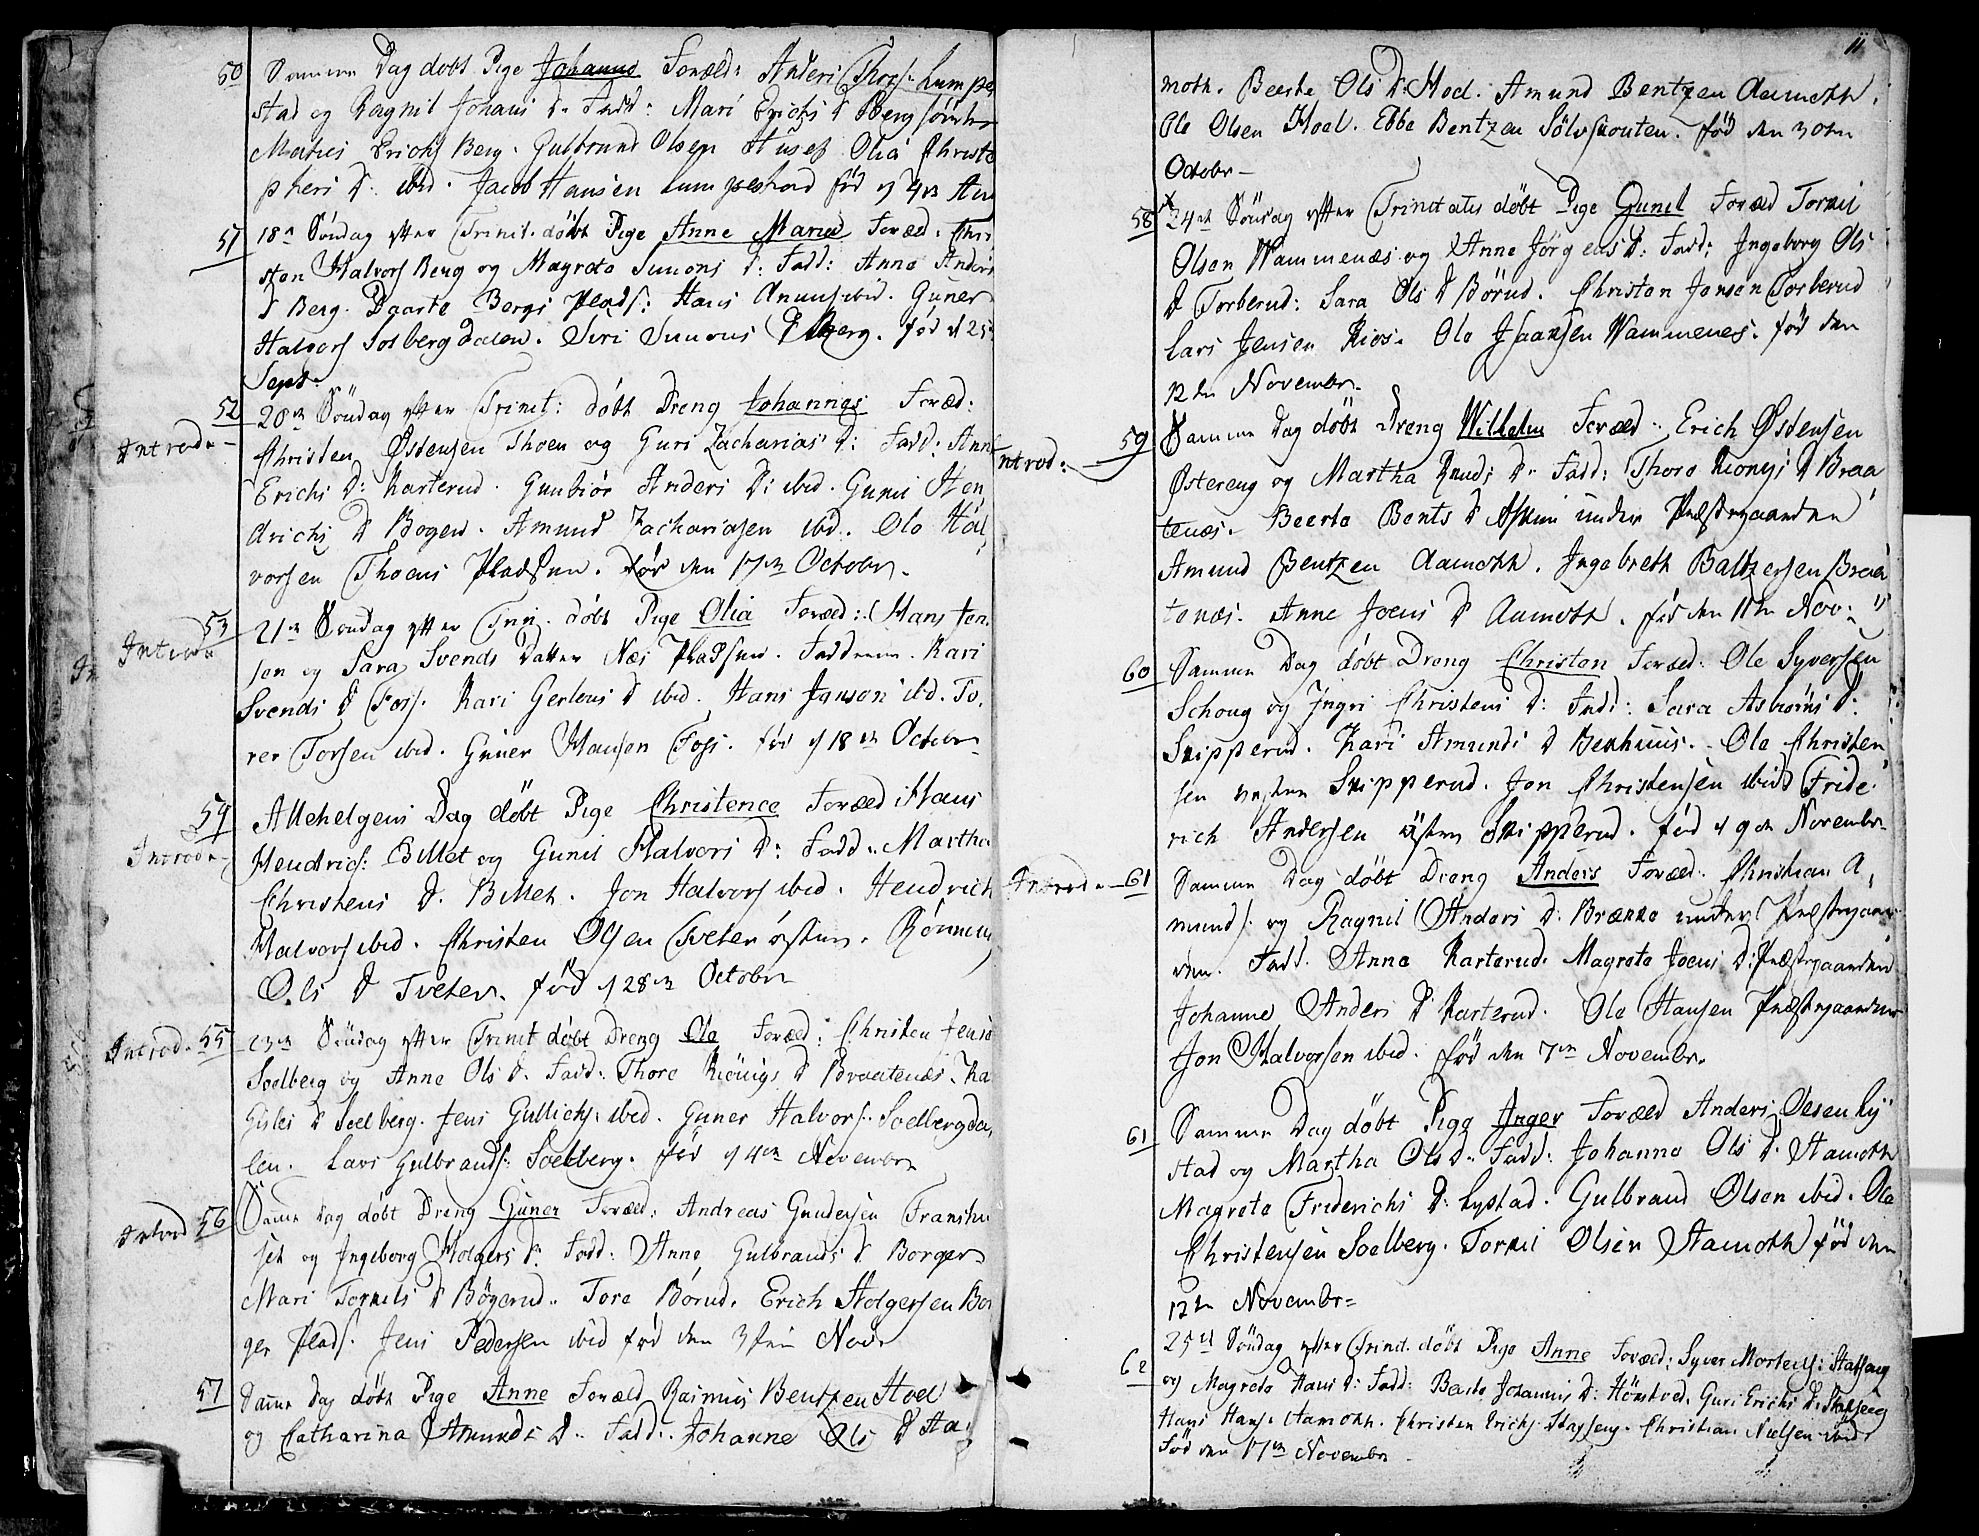 50 Samme Dag døbt Pige Johanne Foræld: Anders Thors: Lumpe
stad og Ragnil Johans D. Fadd: Mari Erichs D Berg
Matis Erichs Berg. Gulbrand Olsen Huset Olia Christo
phers D: ibid. Jacob Hansen Lumpestad fød
51 18de Søndag efter Trinit. døbt Pige Anne Maria Foræld: Chri
sten Halvors Berg og Magrete Simons D: Fadd: Anne Anders
D Berg. Daarte Bergs Plads: Hans ibid. Guner
Halvors Solbergdalen. Siri Simons D Berg. fød d 25
Septr.
52 20de Søndag efter Trinit: døbt Dreng Johannes Foræld:
Introd: Christen Østensen Thoen og Guri Zacharias D: Fadd: Anne
Erichs D: Karterud. Gunbiør Anders D: ibid. Gunil Hen
drichs D Bogen. Amund Zachariasen ibid. Ole Hal
vorsen Thoens Pladsen. fød den 17de Octobr.
53 21de Søndag efter Trin. døbt Pige Olia Foræld: Hans Jon
Introd: sen og Sara Svends Datter Næs Pladsen. Faddere. Kari
Svends D Foss. Kari Gerlous D ibid. Hans Janson ibid. To
rer Torsen ibid. Guner Hansen Foss. fød d 18de Octobr
54 Allehelgens Dag døbt Pige Christence Foræld: Hans
Introd: Hendrics: Billet og Gunil Halvors D: Fadd: Martha
Christens D. Billet. Jon Halvors ibid. Hendrich
Halvors ibid. Christen Olsen Tveter østen. Rønnau
Ols D Tveter. fød d 28de Octobr
Introd. 55 23de Søndag efter Trinit døbt Dreng Ole Foræld: Christen Jens
Soelberg og Anne Ols D. Fadd: Thore Kiønigs D Braatenæs. Ka
Gisles D Soelberg. Jens Gullichs: ibid. Guner Halvors: Soelbergda
len. Lars Gulbrands: Soelberg. fød d 4de Novembr
Introd 56 Samme Dag døbt Dreng Guner Foræld: Andreas Gundersen Franshu
set og Ingeborg Holgers D: Fadd: Anne Gulbrands D Borger
Mari Torkils D Bøgerud. Tore Børud. Erich Holgersen Bor
ger Plads. Jens Pedersen ibid fød den 3die Novr
57 Samme Dag døbt Pige Anne Foræld Rasmus Bentzen Hoel
og Catharina Amunds D. Fadd: Johanne Ols D Aa
11
moth. Beerte Ols D: Hoel. Amund Bentzen Aamoth.
Ole Olsen Hoel. Ebbe Bentzen Sølvskouten. fød den 30te
Octobr
58 24de Søndag efter Trinitatis døbt Pige Gunil Foræld Torkil
Olsen Wammenæs og Anne Jørgens D: Fadd: Ingeborg Ols
D Torberud: Sara Ols D Børud. Christen Jensen Torberud
Lars Jensen Kios. Ole Isaaksen Wammenes. fød den
12te Novembr.
59 Samme Dag døbt Dreng Wilhelm Foræld: Erich Østensen
Introd: Østereng og Martha Knuds D: Fadd: Thore Kionigs D Braa
tenæs. Beerte Bents D Askim under Præstegaarden
Amund Bentzen Aamoth. Ingebreth Baltzersen Braa
tenæs. Anne Joens D Aamoth. fød den 11te Nov:
60 Samme Dag døbt Dreng Christen Foræld: Ole Syversen
Schoug og Ingri Christens D: Fadd: Sara Asbiørns D:
Skipperud. Kari Amunds D Bekhuus. Ole Christen
sen vesten Skipperud. Jon Christensen ibid Fride
rich Andersen østen Skipperud. fød d 9de Novembr
Introd: 61 Samme Dag døbt Dreng Anders Foræld: Christian A
munds: og Ragnil Anders D: Brække under Præstegaar
den. Fadd. Anne Karterud. Magrete Joens D: Præstegaarden
Johanne Anders D Karterud. Ole Hansen Præstegaarden
Jon Halvorsen ibid. fød den 7de Novembr.
61 Samme Dag døbt Pige Inger Foræld Anders Olsen Ly
stad og Martha Ols D: Fadd: Johanne Ols D. Aamoth
Magrete Friderichs D: Lystad. Gulbrand Olsen ibid. Ole
Christensen Soelberg. Torkil Olsen Aamoth fød den
12te Novembr
62 25de Søndag efter Trinit. døbt Pige Anne Foræld: Syver Mortens: Staßeng
og Magrete Hans D: Fadd: Beerte Johannis D: Guri Erichs D: Staßeng
Hans Hans: Aamoth. Christen Erichs Stasseng. Christian Nielsen ibid
fød den 17de Novembr